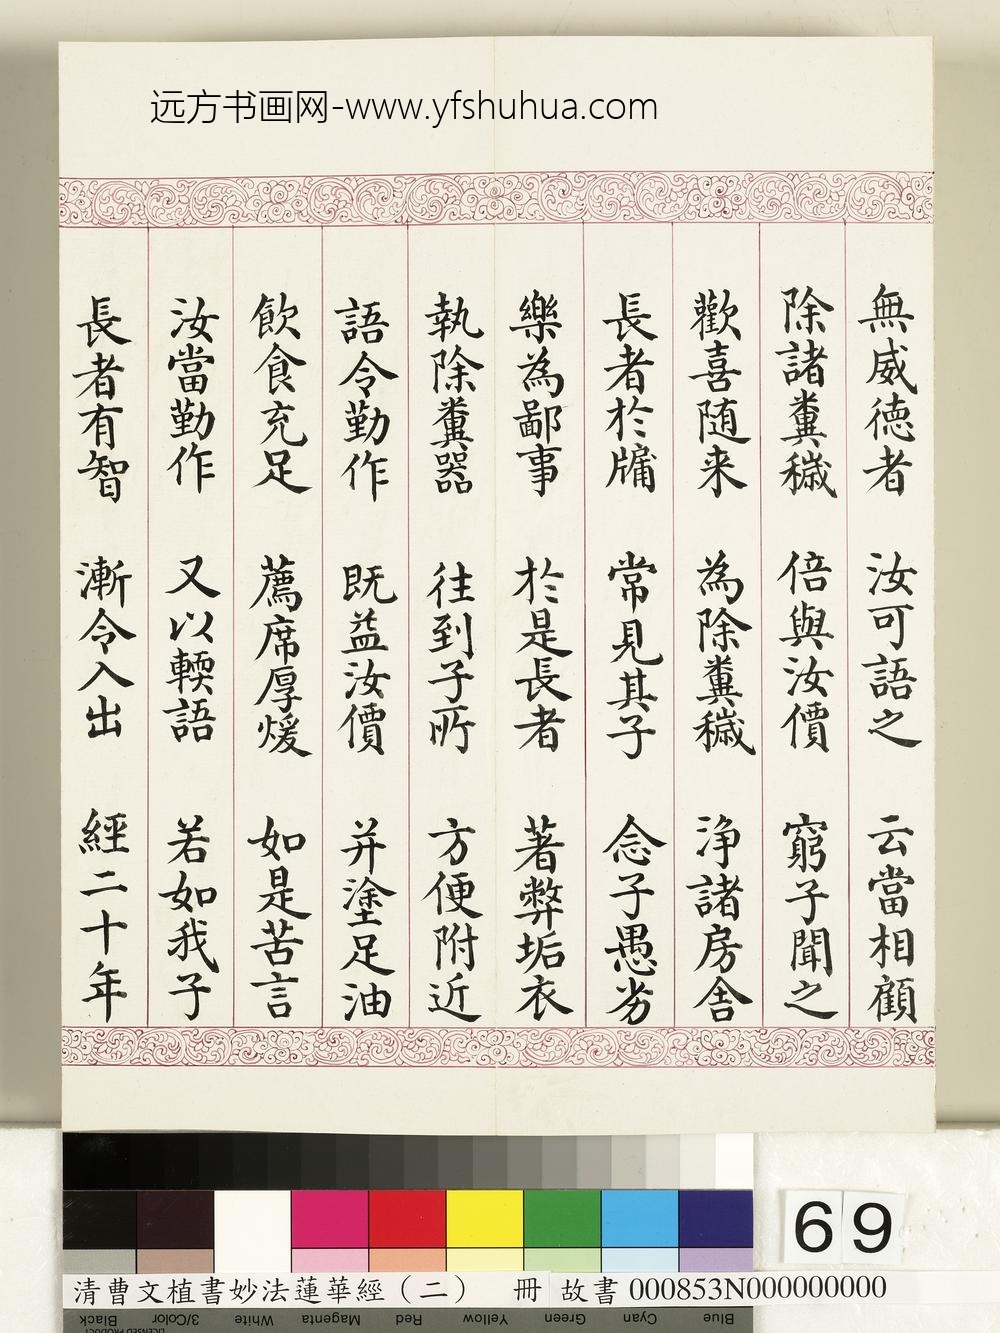 远方书画网-www.yfshuhua.com
無威徳者 汝可語之 云當相顧
除諸糞穢 倍與汝價 窮子聞之
歡喜随来 為除糞穢 浄諸房舎
長者於牖 常見其子 念子愚劣
樂為鄙事 於是長者 著弊垢衣
執除糞器 往到子所 方便附近
語令勤作 既益汝價 并塗足油
飲食充足 薦席厚煖 如是苦言
汝當勤作 又以輭語 若如我子
長者有智 漸令入出 經二十年
69
清曹文植書妙法蓮華經（二） 冊 故書 000853N000000000
Black 3/Color White Magenta Red Yellow Green Cyan Blue
LICENSED PRODUCT